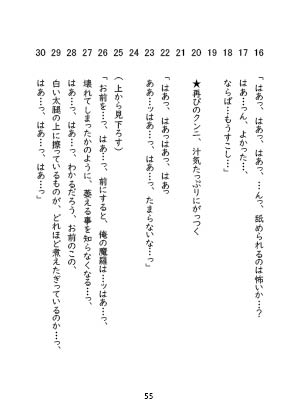 16 「はあっ、はあっ、はあっ、…んっ、舐められるのは怖いか…？
17 はあ…っん、よかった…、
18 ならば…もうすこし…」
19
20 ★再びのクンニ、汁気たっぷりにがっつく
21
22 「はあっ、はあっはあっ、はあっ
23 ああ…ッはあ…っ、はあっ、たまらないな…っ」
24
25 （上から見下ろす）
26 「お前を…っ、はあ…っ、前にすると、俺の魔羅は…ッはあ…っ、
27 壊れてしまったかのように、萎える事を知らなくなる…っ、
28 はあ…っ、はあ…っ、わかるだろう、お前のこの、
29 白い太腿の上に擦っているものが、どれほど煮えたぎっているのか…っ、
30 はあ…っ、はあ…っ、はあ…っ」
55